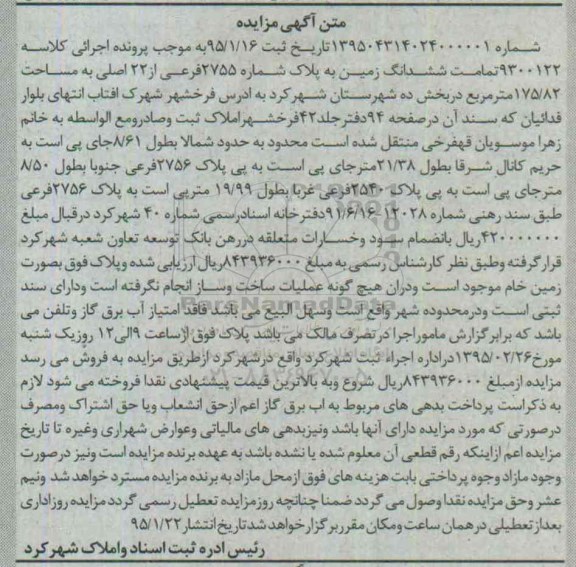 متن آگهی مزایده
شماره ۱۳۹۵۰۴۳۱۴۰۲۴۰۰۰۰۰۱تاریخ ثبت ۹۵/۱/۱۶به موجب پرونده اجرائی کلاسه
۹۳۰۰۱۲۲تمامت ششدانگ زمین به پلاک شماره ۲۷۵۵فرعی از۲۲ اصلی به مساحت
۱۷۵/۸۲مترمربع دربخش ده شهرستان شهرکرد به ادرس فرخشهر شهرک افتاب انتهای بلوار
فدائیان که سند آن درصفحه ۹۴دفترجلد۴۲فرخشهراملاک ثبت وصادرومع الواسطه به خانم
زهرا موسویان قهفرخی منتقل شده است محدود به حدود شمالا بطول ۸/۶۱جای پی است به
حریم کانال شرقا بطول ۲۱/۳۸مترجای پی است به پی پلاک ۲۷۵۶فرعی جنوبا بطول ۸/۵۰
مترجای پی است به پی پلاک ۲۵۴۰فرعی غربا بطول ۱۹/۹۹ مترپی است به پلاک ۲۷۵۶فرعی
طبق سند رهنی شماره ۱۲۰۲۸-۹۱/۶/۱۶دفترخانه اسنادرسمی شماره ۴۰ شهرکرد درقبال مبلغ
۴۲۰۰۰۰۰۰۰ریال بانضمام سود وخسارات متعلقه دررهن بانک توسعه تعاون شعبه شهرکرد
قرارگرفته وطبق نظر کارشناس رسمی به مبلغ ۸۴۳۹۳۶۰۰۰ریال ارزیابی شده وپلاک فوق بصورت
زمین خام موجود است ودران هیچ گونه عملیات ساخت وساز انجام نگرفته است ودارای سند
ثبتی است ودرمحدوده شهر واقع است وسهل البیع می باشد فاقد امتیاز آب برق گاز وتلفن می
باشد که برابرگزارش ماموراجرا درتصرف مالک می باشد پلاک فوق ازساعت ۹الی۱۲ روزیک شنبه
مورخ۱۳۹۵/۰۲/۲۶دراداره اجراء ثبت شهرکرد واقع درشهرکرد ازطریق مزایده به فروش می رسد
مزایده ازمبلغ ۸۴۳۹۳۶۰۰۰ریال شروع وبه بالاترین قیمت پیشنهادی نقدا فروخته می شود لازم
به ذکراست پرداخت بدهی های مربوط به اب برق گاز اعم ازحق انشعاب ویا حق اشتراک ومصرف
درصورتی که مورد مزایده دارای آنها باشد ونیزبدهی های مالیاتی وعوارض شهراری وغیره تا تاریخ
مزایده اعم ازاینکه رقم قطعی آن معلوم شده یا نشده باشد به عهده برنده مزایده است ونیز درصورت
وجود مازاد وجوه پرداختی بابت هزینه های فوق ازمحل مازاد به برنده مزایده مسترد خواهد شد ونیم
عشر وحق مزایده نقدا وصول می گردد ضمنا چنانچه روزمزایده تعطیل رسمی گردد مزایده روزاداری
بعدازتعطیلی درهمان ساعت ومکان مقرربرگزارخواهد شدتاریخ انتشار۹۵/۱/۲۲
رئیس ادره ثبت اسناد واملاک شهر کرد
ParsNamadData